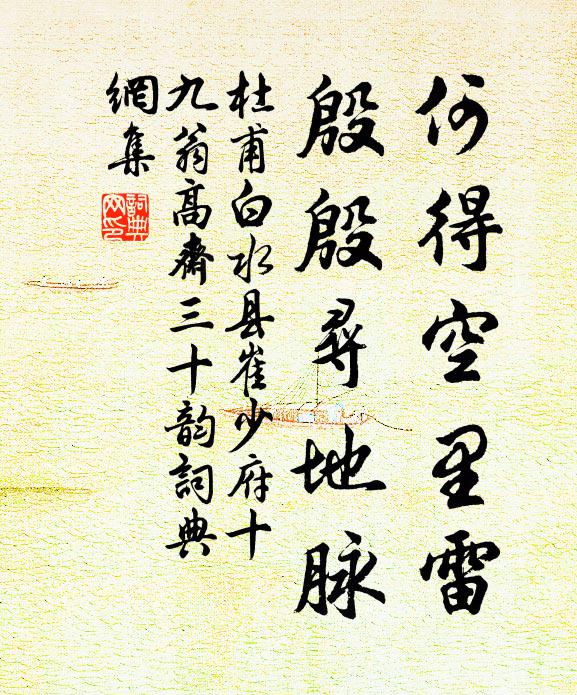 何得空里雷
殷殷尋地脉
杜甫白水县崔少府十
九翁高齋三十韵詞典
網集
詞典
网印